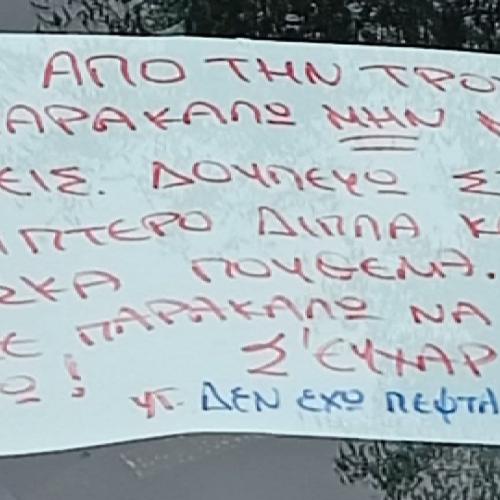 ΑΠΟ ΤΗΝ ΤΡΟ
ΑΡΑΚΑΛΩ ΜΗΝ
ΕΙΣ. ΔΟΥΛΕΥΩ Σ
ΠΤΕΡΟ ΔΙΠΛΑ Κ
ΣΚΑ ΠΟΥΘΕΝΑ.
Ε ΠΑΡΑΚΑΛΩ ΝΑ
Ω! Σ'ΕΥΧΑΡ
ΥΓ. ΔΕΝ ΕΧΩ ΠΕΦΤΑ